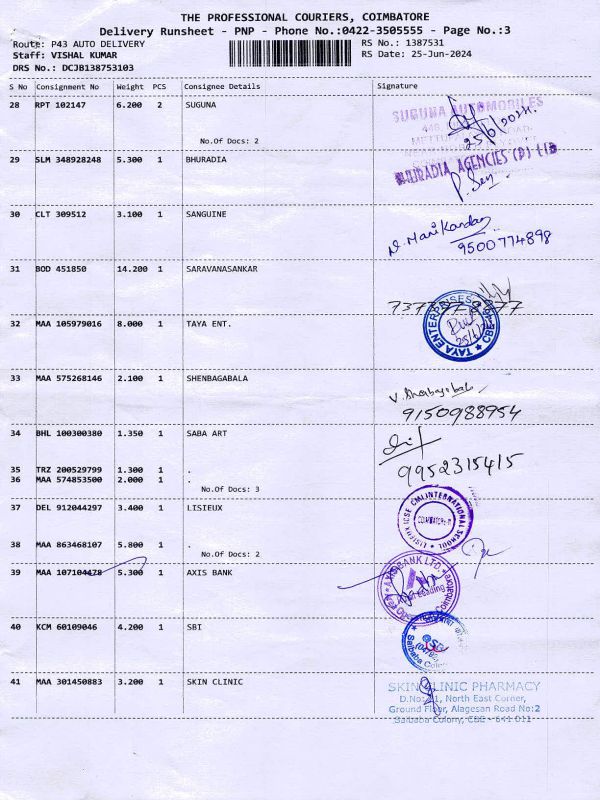 THE PROFESSIONAL COURIERS, COIMBATORE
Delivery Runsheet - PNP - Phone No.:0422-3505555 - Page No.:3
Route: P43 AUTO DELIVERY
RS No.: 1387531
Staff: VISHAL KUMAR
RS Date: 25-Jun-2024
DRS No.: DCJB138753103
S No Consignment No Weight PCS Consignee Details Signature
28 RPT 102147 6.200 2 SUGUNA
SUGUNA AUTOMOBILES
No.Of Docs: 2
29 SLM 348928248 5.300 1 BHURADIA
BHURADIA AGENCIES (P) LTD
30 CLT 309512 3.100 1 SANGUINE
N. Manikandan
9500774898
31 BOD 451850 14.200 1 SARAVANASANKAR
32 MAA 105979016 8.000 1 TAYA ENT.
TAYA ENTERPRISES
33 MAA 575268146 2.100 1 SHENBAGABALA
9150988954
34 BHL 100300380 1.350 1 SABA ART
9952315415
35 TRZ 200529799 1.300 1 .
36 MAA 574853500 2.000 1 .
No.Of Docs: 3
37 DEL 912044297 3.400 1 LISIEUX
LISIEUX ICSE CMI INTERNATIONAL SCHOOL
38 MAA 863468107 5.800 1 .
No.Of Docs: 2
39 MAA 107104478 5.300 1 AXIS BANK
AXIS BANK LTD.
40 KCM 60109046 4.200 1 SBI
41 MAA 301450883 3.200 1 SKIN CLINIC
SKIN CLINIC PHARMACY
North East Corner,
Ground Floor, Alagesan Road No:2
Saibaba Colony, CBE - 641 011